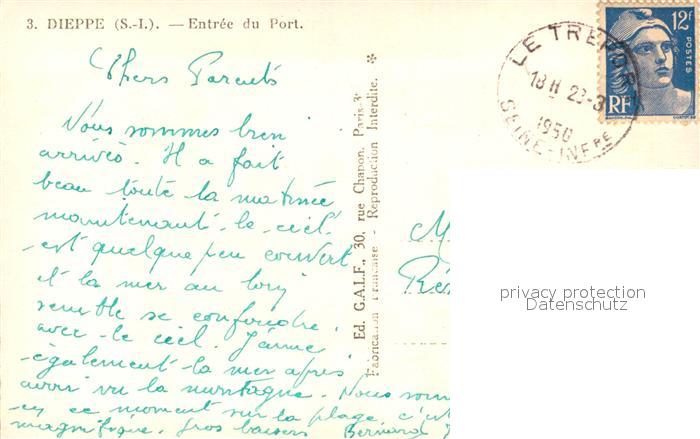 3. DIEPPE (S.-I.). — Entrée du Port.
Chers Parents
Nous sommes bien
arrivés. Il a fait
beau toute la matinée
maintenant le ciel
est quelque peu couvert
et la mer au loin
semble se confondre
avec le ciel. J'aime
également la mer après
avoir vu la montagne. Nous som
en ce moment sur la plage c'est
magnifique. Gros baisers Bernard
Ed. G.A.L.F., 30, rue Chapon, Paris-3e
Fabrication Française - Reproduction Interdite. *
LE TREPOR
18 H 23-3
1950
SEINE-INFRE
12F
POSTES
RF
M
Ré
privacy protection
Datenschutz